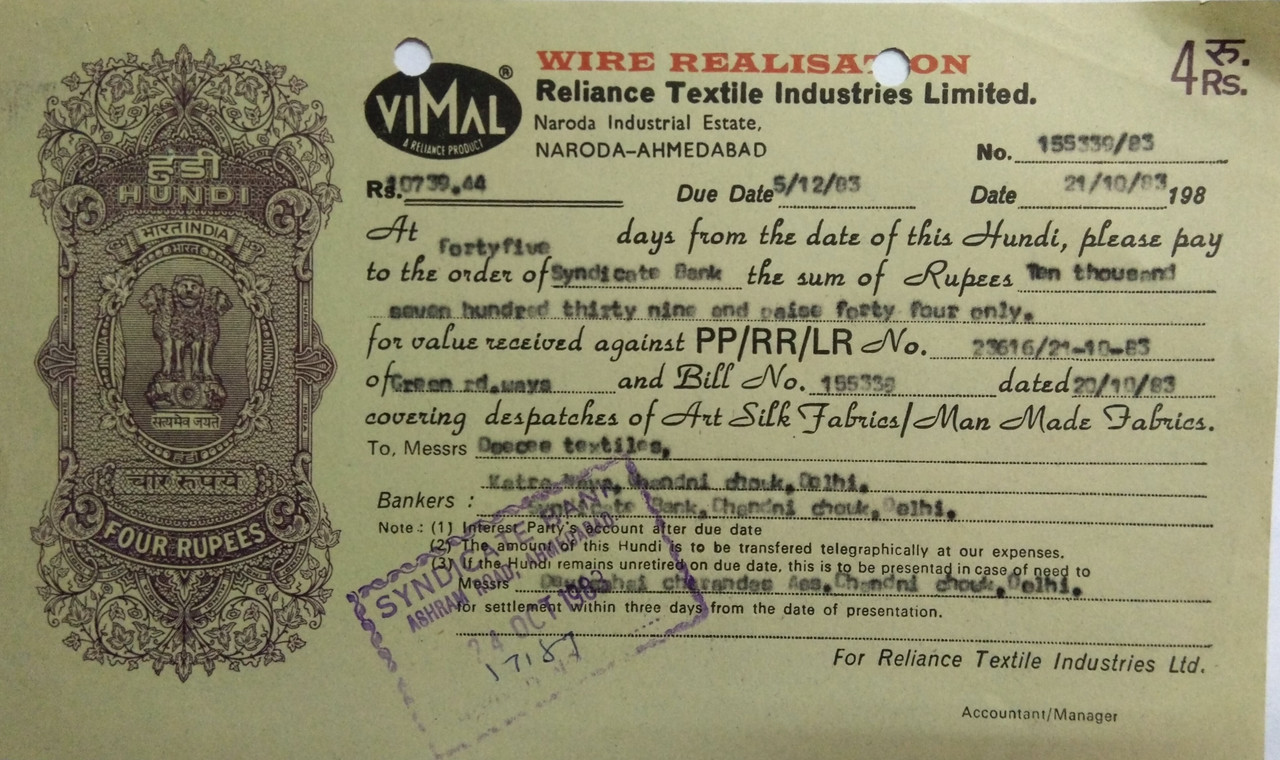 हुंडी
HUNDI
भारत INDIA
भारत
INDIA
HUNDI
सत्यमेव जयते
हुंडी
चार रुपय
FOUR RUPEES
4 रु.
Rs.
VIMAL ®
A RELIANCE PRODUCT
WIRE REALISAT ON
Reliance Textile Industries Limited.
Naroda Industrial Estate,
NARODA-AHMEDABAD
No. 155339/83
Rs. 10739.44 Due Date 5/12/83 Date 21/10/83 198
At fortyfive days from the date of this Hundi, please pay
to the order of Syndicate Bank the sum of Rupees Ten thousand
seven hundred thirty nine and paise forty four only.
for value received against PP/RR/LR No. 23616/21-10-83
of Green rd.ways and Bill No. 155339 dated 20/10/83
covering despatches of Art Silk Fabrics/Man Made Fabrics.
To, Messrs Deecee textiles,
Katra Chandni chouk, Delhi.
Bankers : Syndicate Bank, Chandni chouk, Delhi.
Note : (1) Interest Party's account after due date
(2) The amount of this Hundi is to be transfered telegraphically at our expenses.
(3) If the Hundi remains unretired on due date, this is to be presentad in case of need to
Messrs charandas Chandni chouk, Delhi.
for settlement within three days from the date of presentation.
For Reliance Textile Industries Ltd.
Accountant/Manager
SYNDICATE BANK
ASHRAM ROAD, AHMEDABAD.
24 OCT 1983